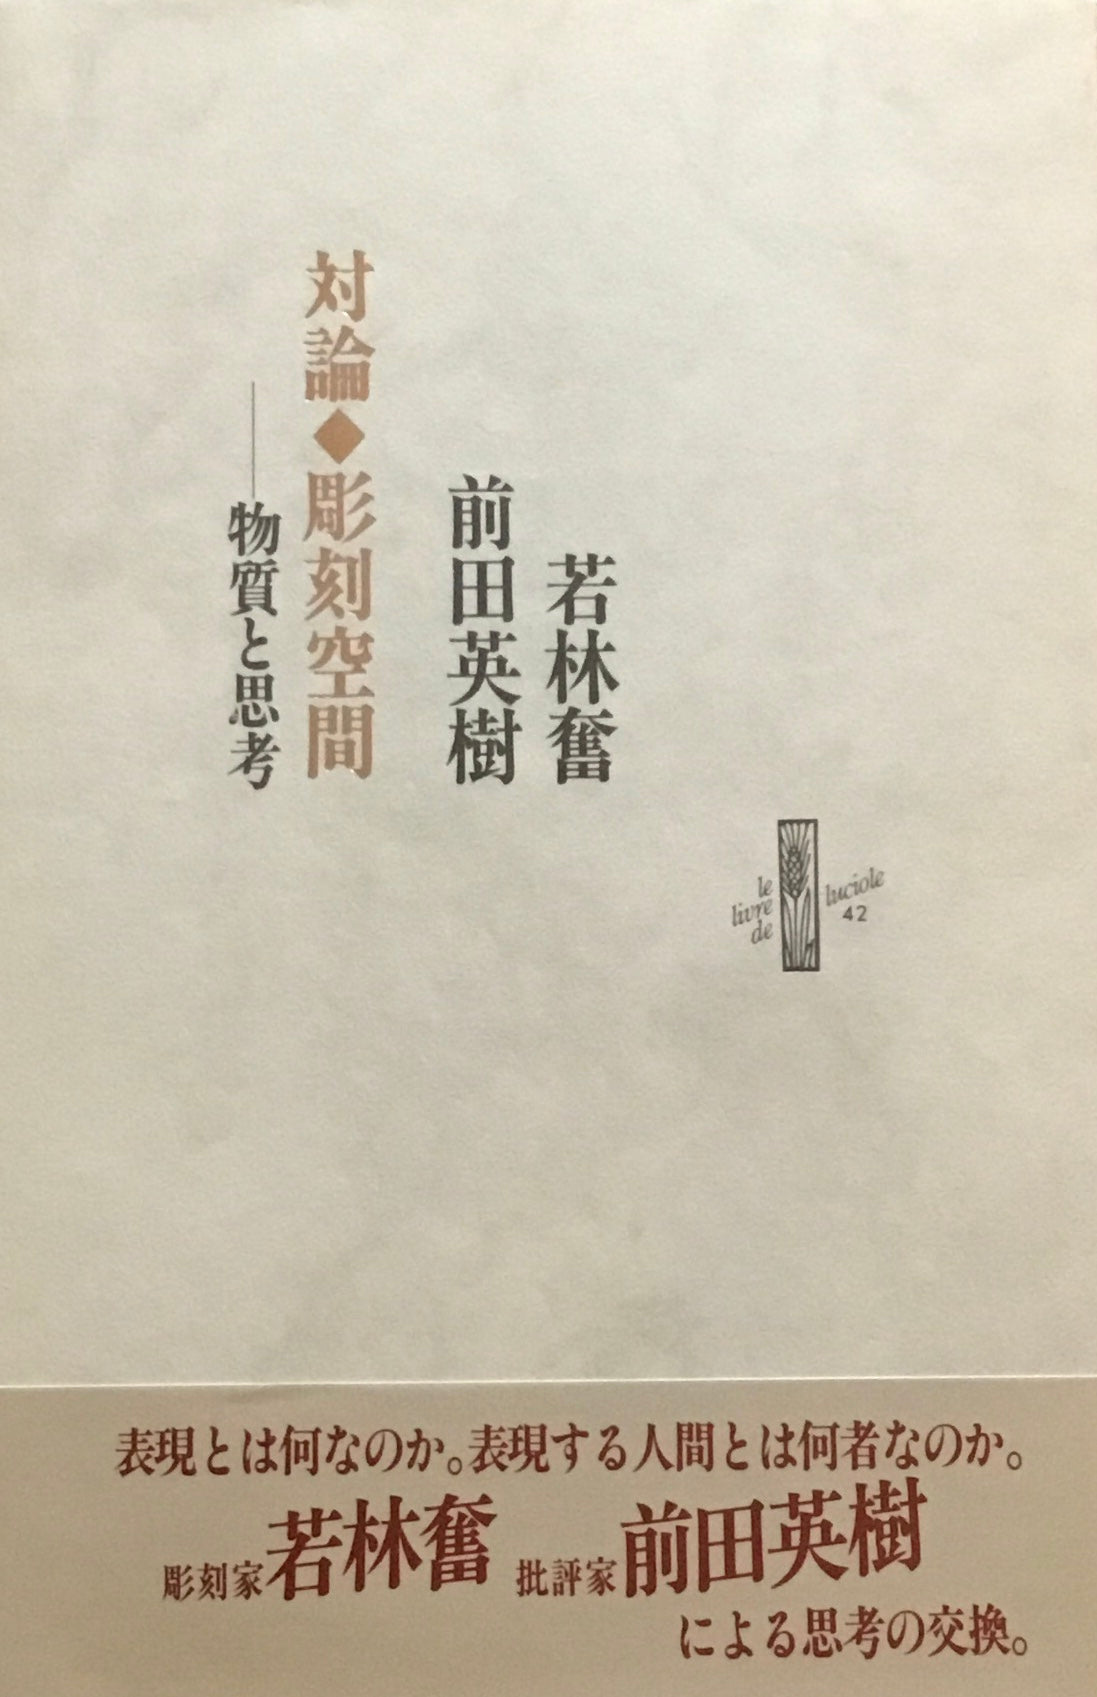 若林奮
前田英樹
対論◆彫刻空間
――物質と思考
le
livre
de
luciole
42
表現とは何なのか。表現する人間とは何者なのか。
彫刻家若林奮 批評家前田英樹
による思考の交換。